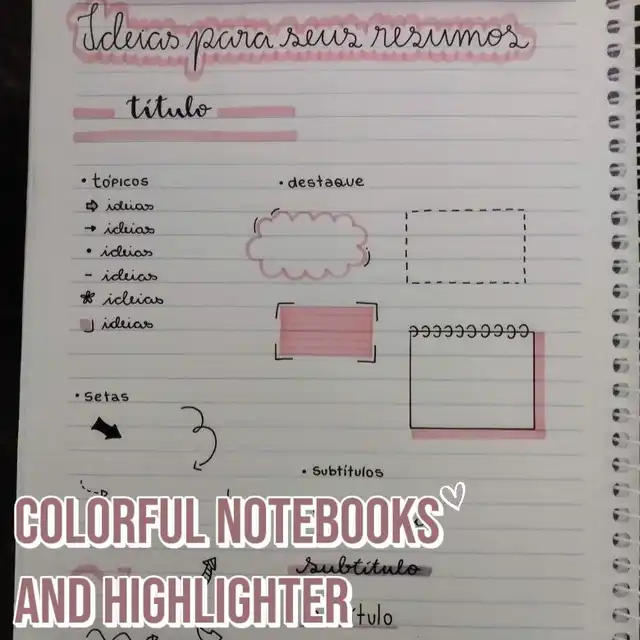 Ideias para seus resumos
título
• tópicos
⇨ ideias
→ ideias
• ideias
- ideias
* ideias
ideias
• destaque
• setas
• subtítulos
subtítulo
COLORFUL NOTEBOOKS
AND HIGHLIGHTER